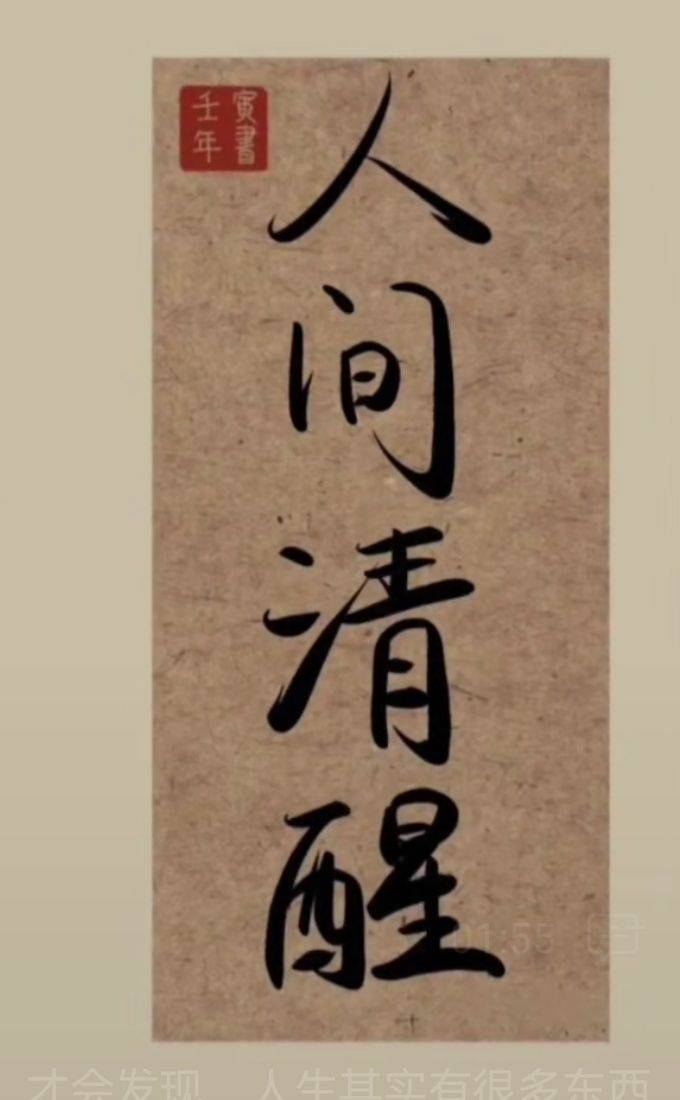 人间清醒
壬寅
年書
01:55
才会发现 人生其实有很多东西